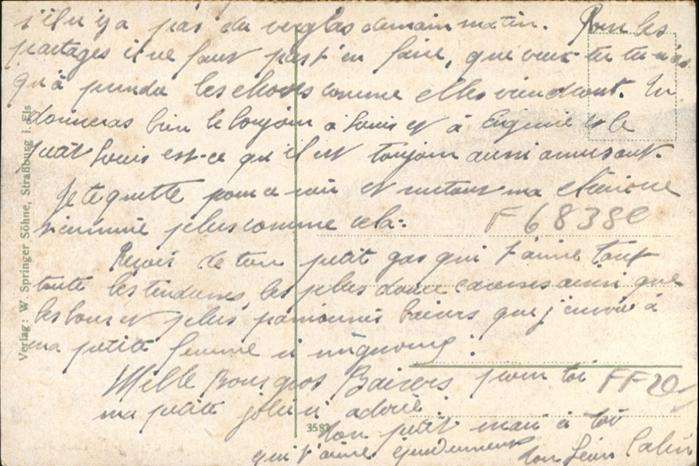 s'il n'y a pas du verglas demain matin. Pour les
partages il ne faut pas t'en faire, que veux tu tu n'as
qu'à prendre les choses comme elles viendront. Tu
donneras bien le bonjour à Louis et à Eugénie et le
petit Louis est-ce qu'il est toujours aussi amusant.
Je te quitte pour ce soir et surtout ma chérie ne
t'ennuie plus comme cela.
F 6838e
Reçois de ton petit gas qui t'aime tout
toute les tendresses les plus douces caresses ainsi que
les bons et plus passionnés baisers que j'envoie à
ma petite femme si mignonne !
Mille Bons gros Baisers pour toi
FF20
ma petite jolie adorée
Ton petit mari à toi
qui t'aime éperdument
Ton Léon
3583
Verlag: W. Springer Söhne, Straßburg i. Els